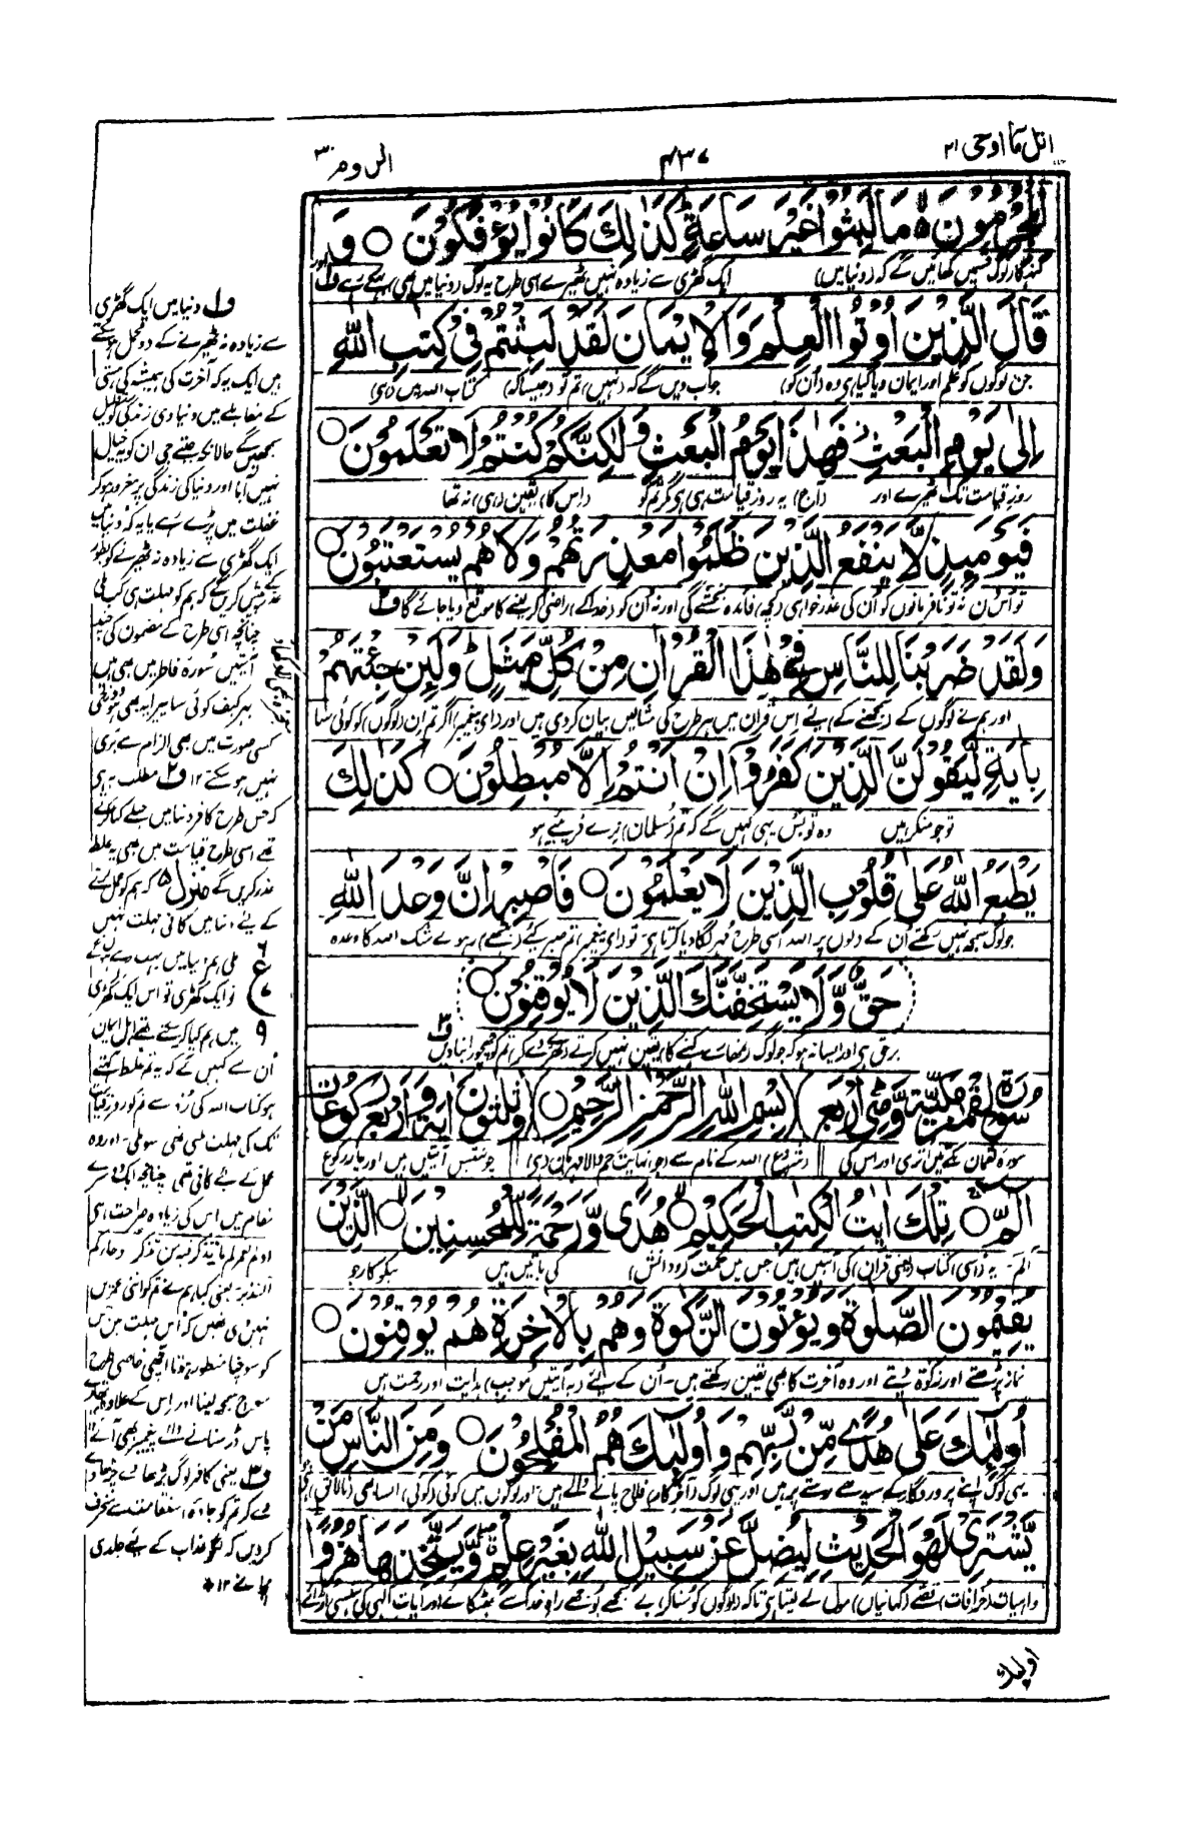 اتل ما اوحی ۲۱
۴۳۷
الروم ۳۰
الْمُجْرِمُوْنَ ۙ مَا لَبِثُوْا غَیْرَ سَاعَةٍ ؕ كَذٰلِكَ كَانُوْا یُؤْفَكُوْنَ ○ وَ
گنہگار لوگ قسمیں کھائیں گے کہ (دنیا میں) ایک گھڑی سے زیادہ نہیں ٹھیرے اسی طرح یہ لوگ (دنیا میں بھی) بہکے رہے ف۱ اور
قَالَ الَّذِیْنَ اُوْتُوا الْعِلْمَ وَ الْاِیْمَانَ لَقَدْ لَبِثْتُمْ فِیْ كِتٰبِ اللّٰهِ
جن لوگوں کو علم اور ایمان دیا گیا ہی وہ (ان کو) جواب دیں گے کہ (نہیں) تم تو (جیسا کہ) کتاب اللہ میں (ہی)
اِلٰی یَوْمِ الْبَعْثِ ؗ فَهٰذَا یَوْمُ الْبَعْثِ وَ لٰكِنَّكُمْ كُنْتُمْ لَا تَعْلَمُوْنَ ○
روز قیامت تک ٹھیرے اور (آج) یہ روز قیامت ہی ہی مگر تم کو (اس کا) یقین (ہی) نہ تھا
فَیَوْمَىِٕذٍ لَّا یَنْفَعُ الَّذِیْنَ ظَلَمُوْا مَعْذِرَتُهُمْ وَ لَا هُمْ یُسْتَعْتَبُوْنَ ○
تو اُس دن نہ تو نافرمانوں کو اُن کی عذر خواہی (کچھ) فائدہ بخشے گی اور نہ اُن کو (خدا کے) راضی کر لینے کا موقع دیا جائے گا ف۲
وَ لَقَدْ ضَرَبْنَا لِلنَّاسِ فِیْ هٰذَا الْقُرْاٰنِ مِنْ كُلِّ مَثَلٍ ؕ وَ لَىِٕنْ جِئْتَهُمْ
اور ہم نے لوگوں کے (سمجھنے کے) لئے اس قرآن میں ہر طرح کی مثالیں بیان کر دی ہیں اور (ای پیغمبر) اگر تم ان (لوگوں) کو کوئی سا
بِاٰیَةٍ لَّیَقُوْلَنَّ الَّذِیْنَ كَفَرُوْۤا اِنْ اَنْتُمْ اِلَّا مُبْطِلُوْنَ ○ كَذٰلِكَ
تو جو منکر ہیں وہ تو بس یہی کہیں گے کہ تم (مسلمان) نرے فریبئے ہو
یَطْبَعُ اللّٰهُ عَلٰی قُلُوْبِ الَّذِیْنَ لَا یَعْلَمُوْنَ ○ فَاصْبِرْ اِنَّ وَعْدَ اللّٰهِ
جو لوگ سمجھ نہیں رکھتے اُن کے دلوں پر اللہ اسی طرح مُہر لگا دیا کرتا ہی تو (ای پیغمبر) تم صبر کئے (بیٹھے) رہو بے شک اللہ کا وعدہ
حَقٌّ وَّ لَا یَسْتَخِفَّنَّكَ الَّذِیْنَ لَا یُوْقِنُوْنَ ○
برحق ہی اور ایسا نہ ہو کہ جو لوگ (تمھارے کہنے کا) یقین نہیں کرتے تم کو چھچورا بنا دیں ف۳
سُوْرَةُ لُقْمٰنَ مَكِّیَّةٌ وَّ هِیَ اَرْبَعٌ (بِسْمِ اللّٰهِ الرَّحْمٰنِ الرَّحِیْمِ ○) وَّ ثَلٰثُوْنَ اٰیَةً وَّ اَرْبَعُ رُكُوْعَاتٍ
سورۂ لقمان مکے میں اتری اور اس کی (شروع) اللہ کے نام سے (جو) نہایت رحم والا مہربان (ہی) چونتیس آیتیں ہیں اور چار رکوع
الٓمّٓ ○ تِلْكَ اٰیٰتُ الْكِتٰبِ الْحَكِیْمِ ○ هُدًی وَّ رَحْمَةً لِّلْمُحْسِنِیْنَ ○ الَّذِیْنَ
الٓمٓ۔ یہ (اسی) کتاب (یعنی قرآن) کی آیتیں ہیں جس میں حکمت (و دانش) کی باتیں ہیں نیکوکار جو
یُقِیْمُوْنَ الصَّلٰوةَ وَ یُؤْتُوْنَ الزَّكٰوةَ وَ هُمْ بِالْاٰخِرَةِ هُمْ یُوْقِنُوْنَ ○
نماز پڑھتے اور زکوٰۃ دیتے اور وہ آخرت کا بھی یقین رکھتے ہیں۔ اُن کے لئے (یہ آیتیں موجب) ہدایت اور رحمت ہیں
اُولٰٓىِٕكَ عَلٰی هُدًی مِّنْ رَّبِّهِمْ وَ اُولٰٓىِٕكَ هُمُ الْمُفْلِحُوْنَ ○ وَ مِنَ النَّاسِ مَنْ
یہی لوگ اپنے پروردگار کے سیدھے رستے پر ہیں اور یہی لوگ (آخرکار) فلاح پانے والے ہیں اور لوگوں میں کوئی (کوئی) ایسا بھی (نالائق) ہی
یَّشْتَرِیْ لَهْوَ الْحَدِیْثِ لِیُضِلَّ عَنْ سَبِیْلِ اللّٰهِ بِغَیْرِ عِلْمٍ وَّ یَتَّخِذَهَا هُزُوًا
واہیات (خرافات) قصے (کہانیاں) مول لے لیتا ہی تاکہ (لوگوں کو سُنا کر) بے سمجھے بوجھے راہ خدا سے بھٹکائے اور آیات الٰہی کی ہنسی اُڑائے
ف۱ دنیا میں ایک گھڑی
سے زیادہ نہ ٹھیرنے کے دو محمل ہو سکتے
ہیں ایک یہ کہ آخرت کی ہمیشہ کی ہستی
کے مقابلے میں دنیاوی زندگی کو قلیل
سمجھیں گے حالانکہ جیتے جی ان کو یہ خیال
نہیں آیا اور دنیا کی زندگی پر مغرور ہو کر
غفلت میں پڑے رہے یا یہ کہ دنیا میں
ایک گھڑی سے زیادہ نہ ٹھیرنے کو بطور
عذر پیش کریں گے کہ ہم کو مہلت ہی کب ملی
چنانچہ اسی طرح کے مضمون کی چند
آیتیں سورۂ فاطر میں بھی ہیں
بہر کیف کوئی سا پیرایہ بھی ہو
کسی صورت میں بھی الزام سے بری
نہیں ہو سکتے ۱۲ ف۲ مطلب یہ ہی
کہ جس طرح کافر دنیا میں حیلے کیا کرتے
تھے اسی طرح قیامت میں بھی یہ غلط
عذر کریں گے کہ ہم کو عمل کرنے
منزل ۵
کے لئے دنیا میں کافی مہلت نہیں
ملی ہم دنیا میں بہت رہے
تو ایک گھڑی تو اس ایک گھڑی
میں ہم کیا کر سکتے تھے اہل ایمان
ع ۶ ۹
اُن سے کہیں گے کہ یہ تم غلط کہتے
ہو کتاب اللہ کی رُو سے تم کو روز قیامت
تک کی مہلت ملنی تھی سو ملی۔ اور وہ
عمل کے لئے کافی تھی چنانچہ ایک دوسرے
مقام میں اس کی زیادہ صراحت ہی
اولم نعمرکم ما یتذکر فیہ من تذکر و جاءکم
النذیر یعنی کیا ہم نے تم کو اتنی عمریں
نہیں دی تھیں کہ اُس مہلت میں جس
کو سوچنا منظور ہوتا اچھی خاصی طرح
سوچ سمجھ لیتا اور اس کے علاوہ تمھارے
پاس ڈر سنانے والے پیغمبر بھی آئے ۱۲
ف۳ یعنی کافر لوگ
تم کو جادۂ استقامت سے منحرف
کر دیں کہ لگو عذاب کے لئے جلدی
مچانے ۱۲ *
اولٓئک